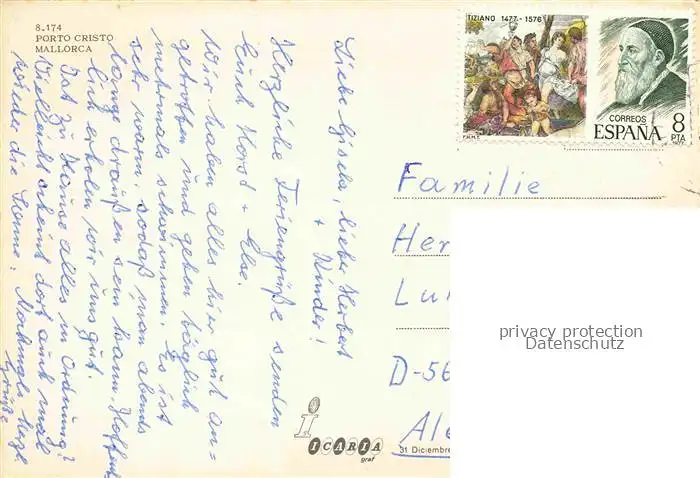 8.174
PORTO CRISTO
MALLORCA
Liebe Gisela, lieber Herbert
+ Kinder!
Herzliche Feriengrüße senden
Euch Horst + Else.
Wir haben alles hier gut an-
getroffen und gehen täglich
mehrmals schwimmen. Es ist
sehr warm, sodaß man abends
lange draußen sein kann. Hoffent
lich erholen wir uns gut.
Ist zu Hause alles in Ordnung?
Vielleicht scheint dort auch mal
wieder die Sonne. Nochmals herzl.
Grüße
TIZIANO 1477-1576
F.N.M.T.
CORREOS
ESPAÑA
8
PTA
1977
Familie
Her
Lu
D-56
Ale
privacy protection
Datenschutz
i
ICARIA
graf
31 Diciembre